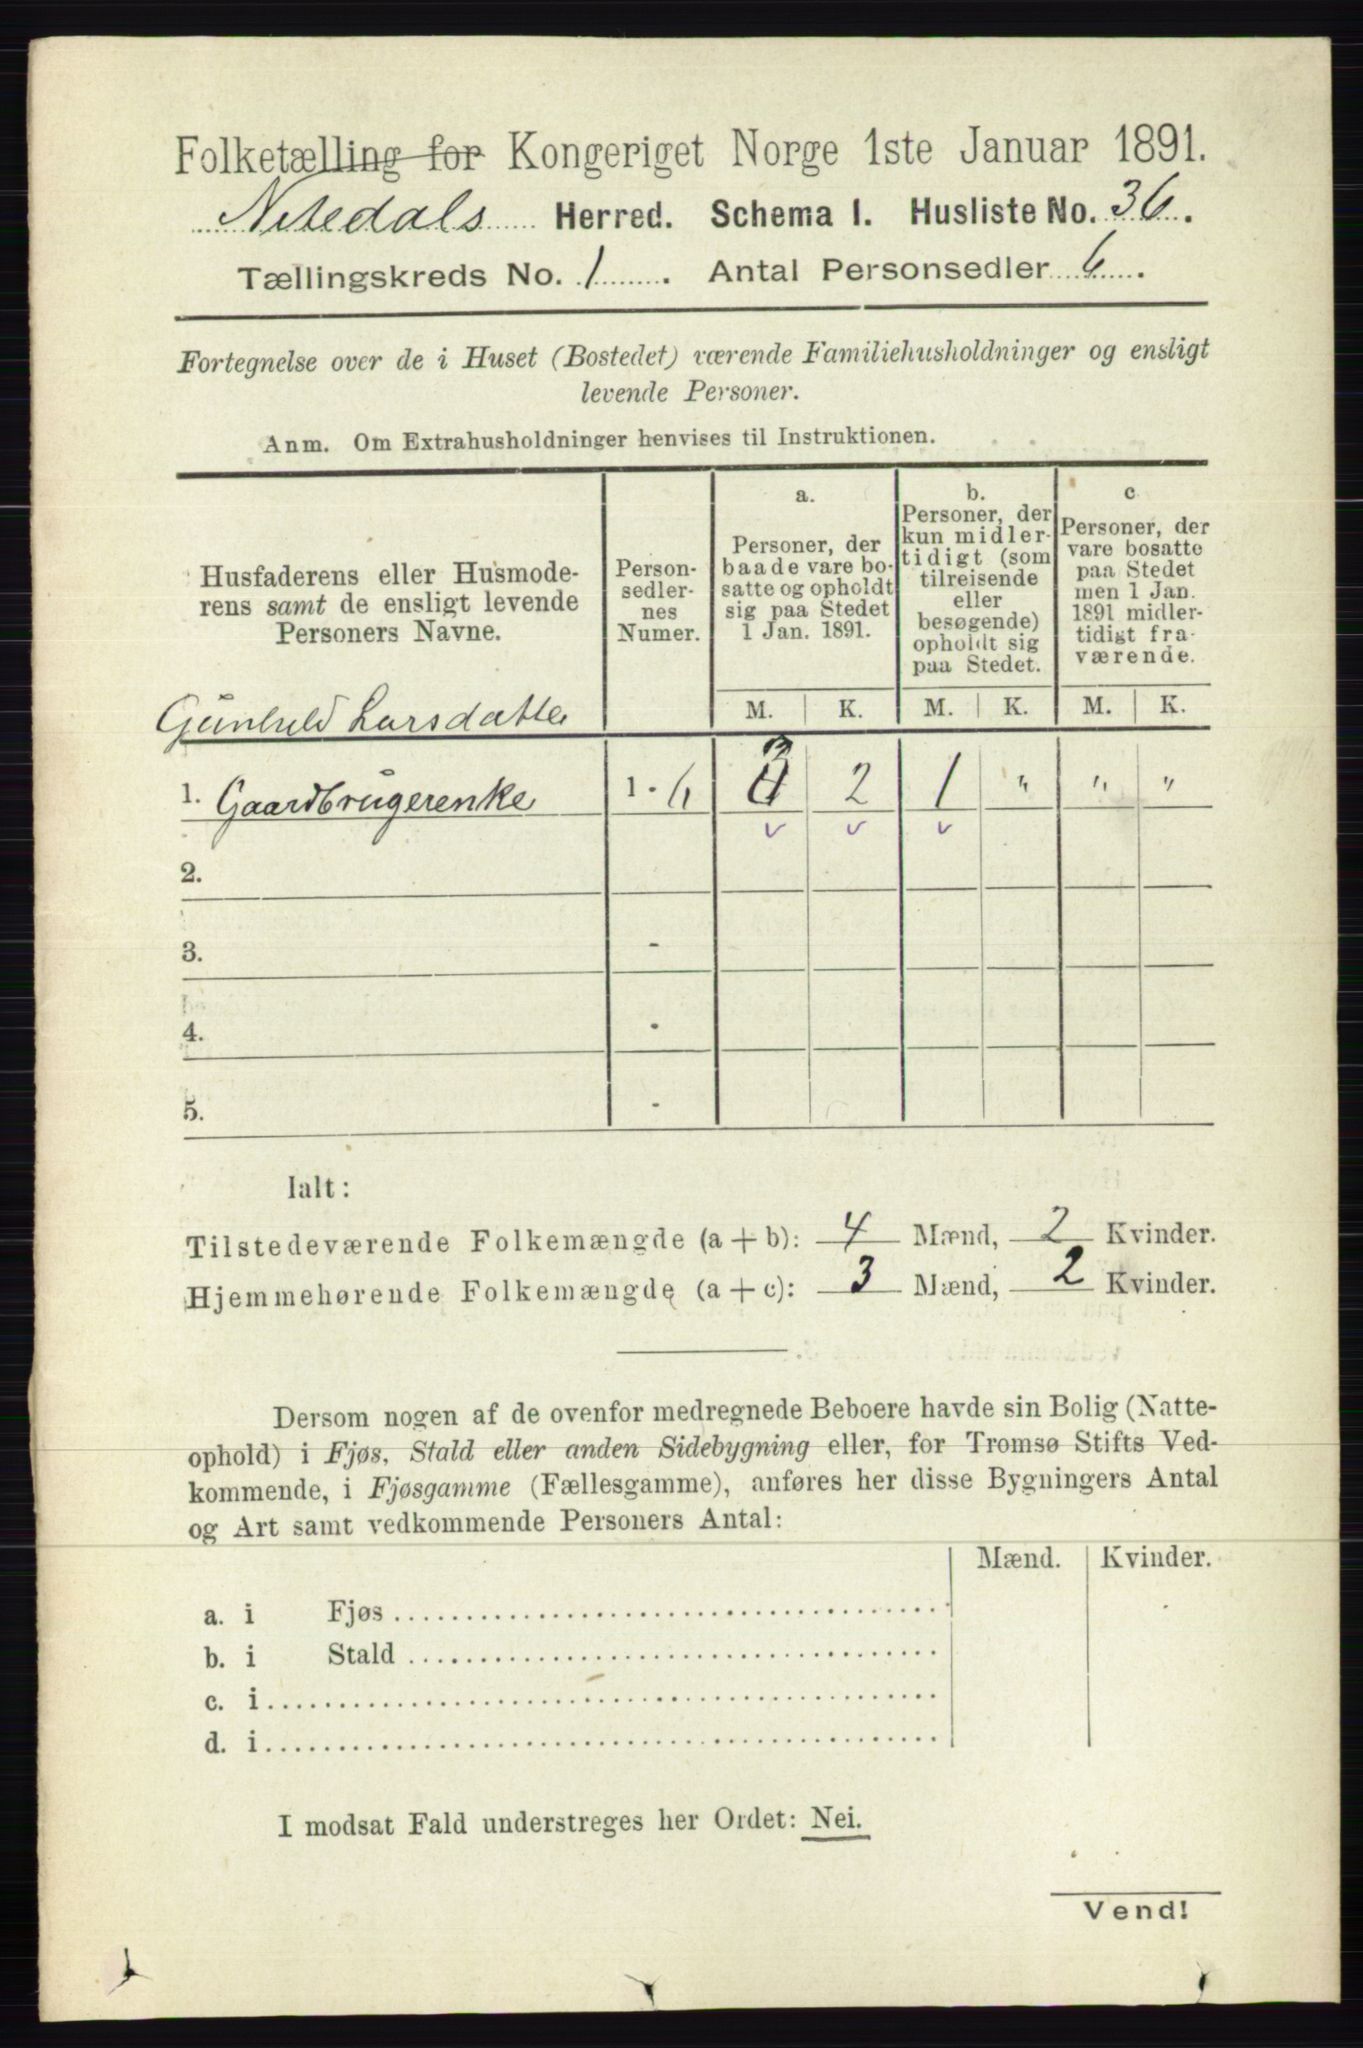 Folketælling for Kongeriget Norge 1ste Januar 1891.
Nitedals Herred. Schema I. Husliste No. 36.
Tællingskreds No. 1. Antal Personsedler 6.
Fortegnelse over de i Huset (Bostedet) værende Familiehusholdninger og ensligt
levende Personer.
Anm. Om Extrahusholdninger henvises til Instruktionen.
Husfaderens eller Husmode-
rens samt de ensligt levende
Personers Navne.
Person-
sedler-
nes
Numer.
a.
Personer, der
baade vare bo-
satte og opholdt
sig paa Stedet
1 Jan. 1891.
b.
Personer, der
kun midler-
tidigt (som
tilreisende
eller
besøgende)
opholdt sig
paa Stedet.
c
Personer, der
vare bosatte
paa Stedet
men 1 Jan.
1891 midler-
tidigt fra-
værende.
M. K. M. K. M. K.
Gunhild Larsdatter
1. Gaardbrugerenke 1 - 6 3 2 1 " " "
v v v
2.
3. -
4. -
5. -
Ialt:
Tilstedeværende Folkemængde (a + b): 4 Mænd, 2 Kvinder.
Hjemmehørende Folkemængde (a + c): 3 Mænd, 2 Kvinder.
Dersom nogen af de ovenfor medregnede Beboere havde sin Bolig (Natte-
ophold) i Fjøs, Stald eller anden Sidebygning eller, for Tromsø Stifts Ved-
kommende, i Fjøsgamme (Fællesgamme), anføres her disse Bygningers Antal
og Art samt vedkommende Personers Antal:
Mænd. Kvinder.
a. i Fjøs
b. i Stald
c. i
d. i
I modsat Fald understreges her Ordet: Nei.
Vend!